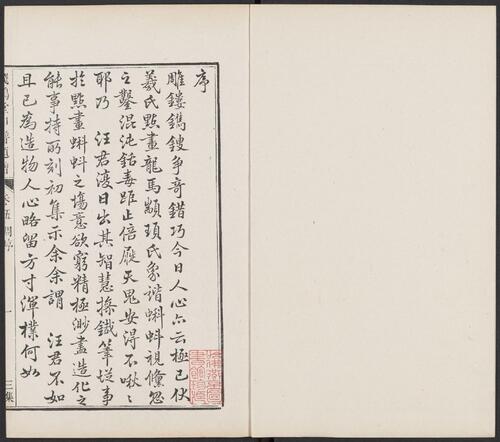 序
雕鏤鐫鎪争奇錯巧今日人心亦云極已伏
羲氏點畫龍馬顓頊氏象諧蝌蚪視儵忽
之鑿混沌銛毒距止倍屣天鬼安得不啾〻
耶乃 汪君復日出其智慧搽鐵筆從事
於點畫蝌蚪之塲意欲窮精極渺盡造化之
能事持所刻初集示余余謂 汪君不如
且已為造物人心略留方寸渾樸何如
卷五 周序
一
三集